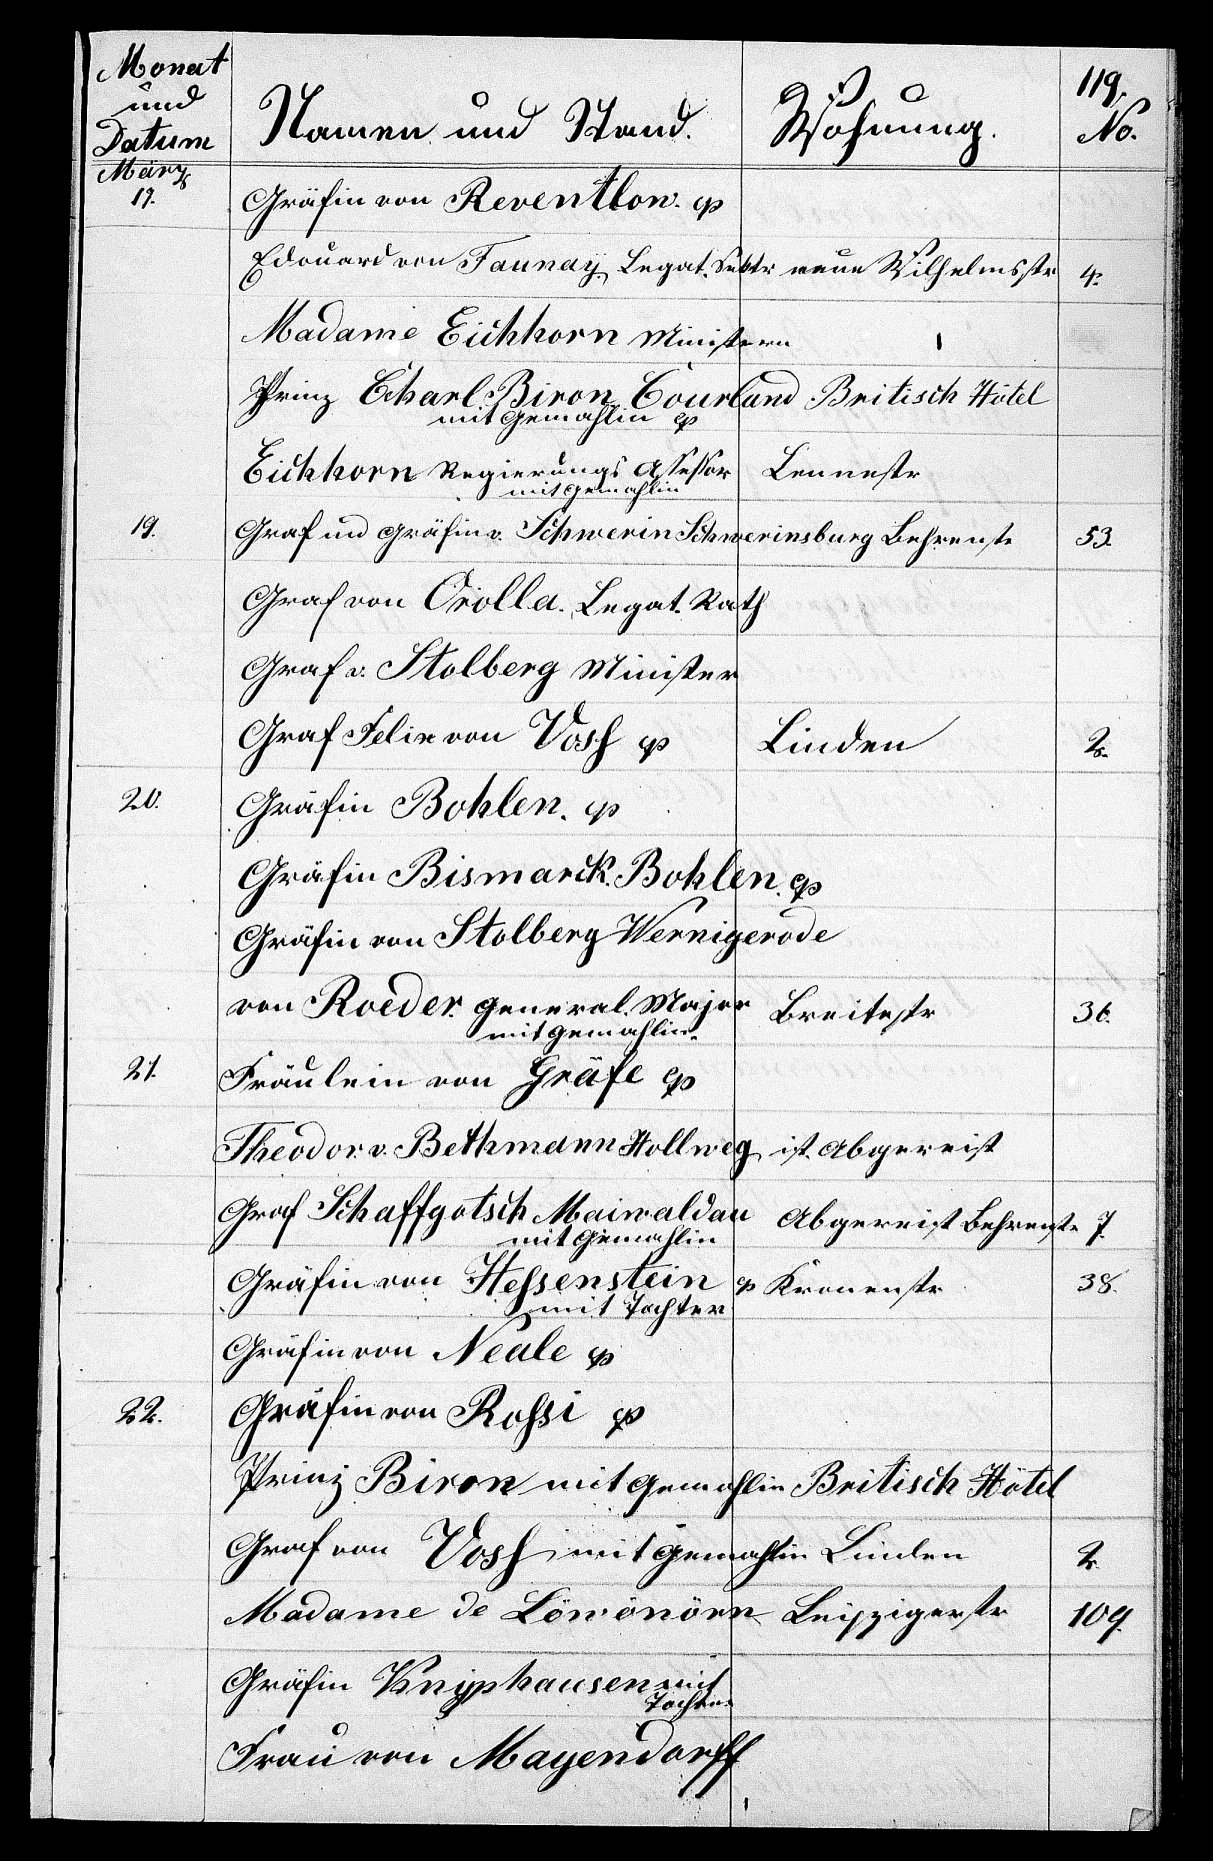 119.
Monat und Datum Namen und Stand. Wohnung. No.
März
19. Gräfin von Reventlow. qp
Edouard von Taunay, Legat. Sektr neue Wilhelmsstr 4.
Madame Eichhorn Ministern
Prinz Charl Biron Courland Britisch Hôtel
mit Gemahlin qp
Eichhorn Regierungs Assessor Lennestr
mit Gemahlin
19. Graf und Gräfin v. Schwerin Schwerinsburg Behrenstr 53.
Graf von Oriolla. Legat. Rath
Graf v. Stolberg Minister
Graf Felix von Voss qp Linden 2.
20. Gräfin Bohlen. qp
Gräfin Bismarck. Bohlen. qp
Gräfin von Stolberg Wernigerode
von Roeder. General. Major Breitestr 36.
mit Gemahlin.
21. Fräulein von Gräfe qp
Theodor v. Bethmann Hollweg ist Abgereist
Graf Schaffgotsch Maiwaldau Abgereist Behrenstr 7.
mit Gemahlin
Gräfin von Hessenstein qp Kronenstr 38.
mit Tochter
Gräfin von Neale qp
22. Gräfin von Rossi qp
Prinz Biron mit Gemahlin Britisch Hôtel
Graf von Voss mit Gemahlin Linden 2.
Madame de Löwönörn Leipzigerstr 109.
Gräfin Knyphausen mit
Tochter
Frau von Mayendorff